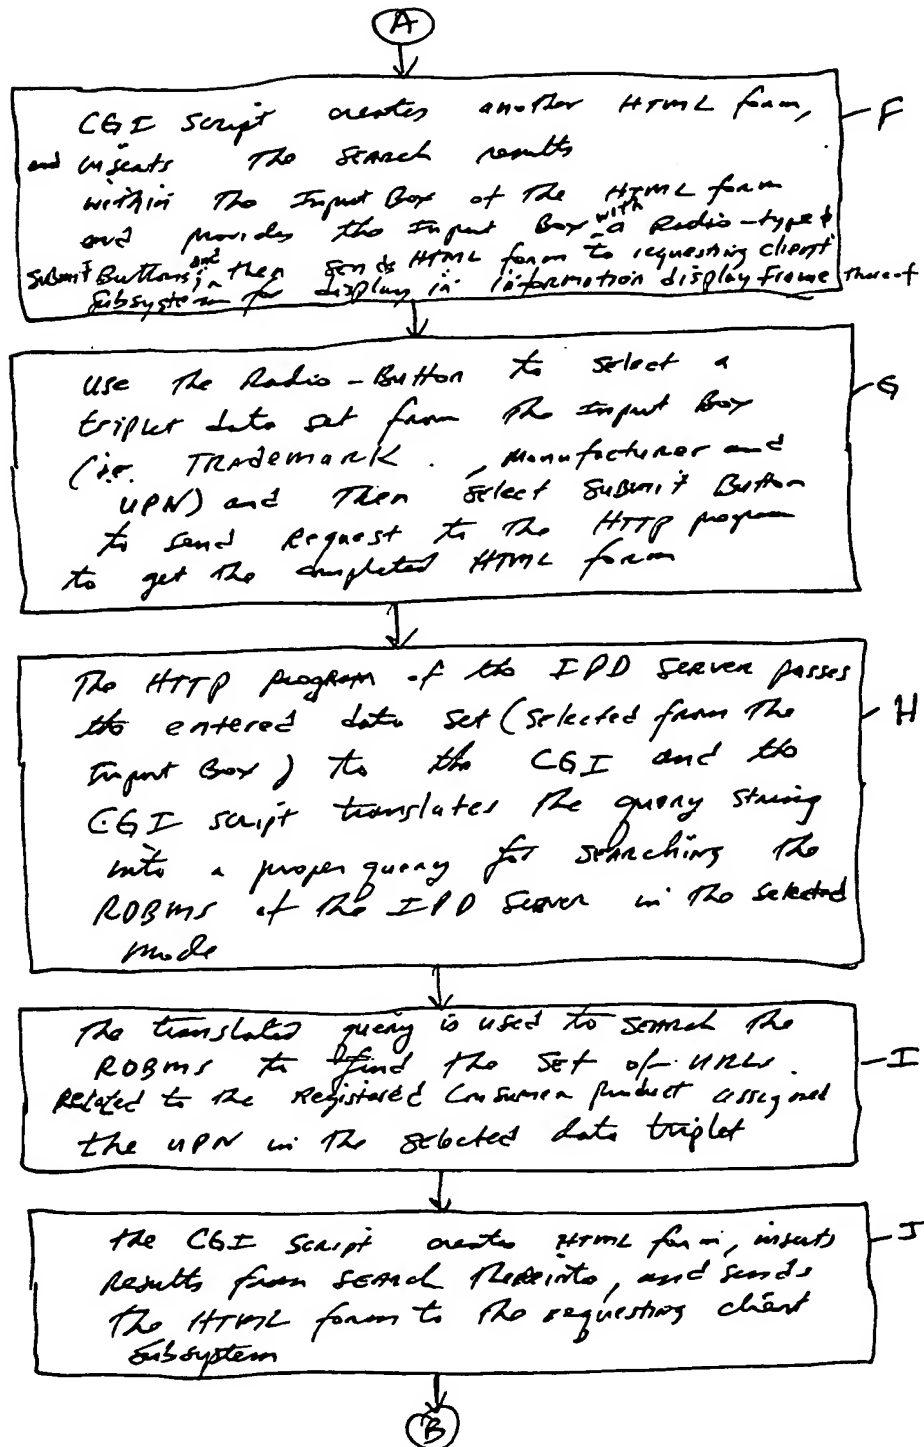 A
CGI Script creates another HTML form,
and inserts The SEARCH results
within The Input Box of The HTML form
and provides the Input Box with a Radio-type &
Submit Buttons; and then sends HTML form to requesting client
subsystem for display in information display frame thereof
F
use The Radio-Button to select a
triplet data set from The Input Box
(i.e. TRademark , Manufacturer and
UPN) and Then select Submit Button
to send Request to The HTTP program
to get the completed HTML form
G
The HTTP program of the IPD Server passes
the entered data set (selected from The
Input Box) to the CGI and the
CGI script translates The query string
into a proper query for SEARching The
RDBMS of The IPD Server in The selected
mode
H
The translated query is used to SEARCH The
RDBMS to find the Set of URLs
Related to the Registered Consumer product assigned
the UPN in The selected data triplet
I
the CGI Script creates HTML form, inserts
Results from SEARCH Thereinto, and sends
the HTML form to The requesting client
subsystem
J
B